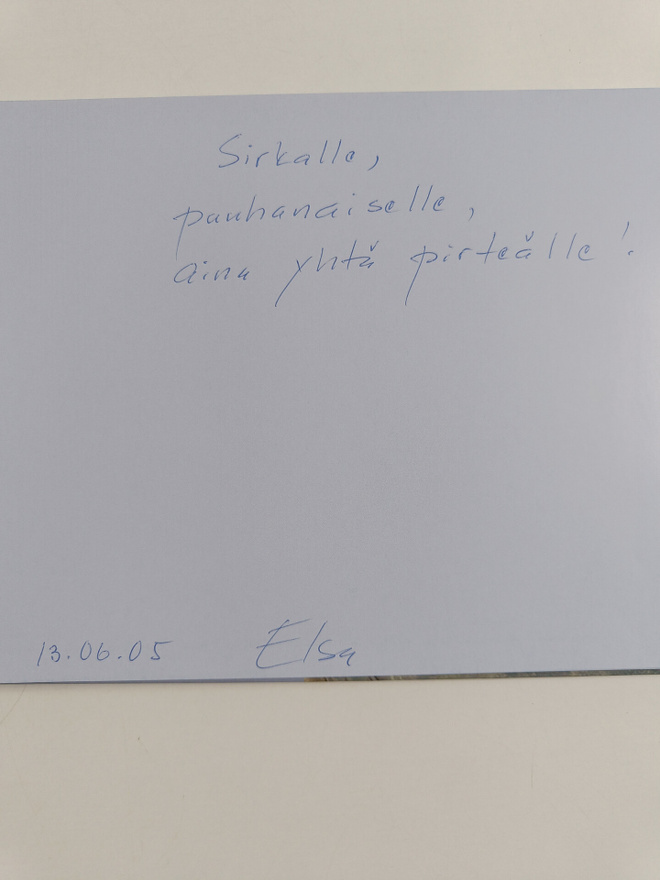 Sirkalle,
pauhanaiselle,
aina yhtä pirteälle!
13.06.05 Elsa